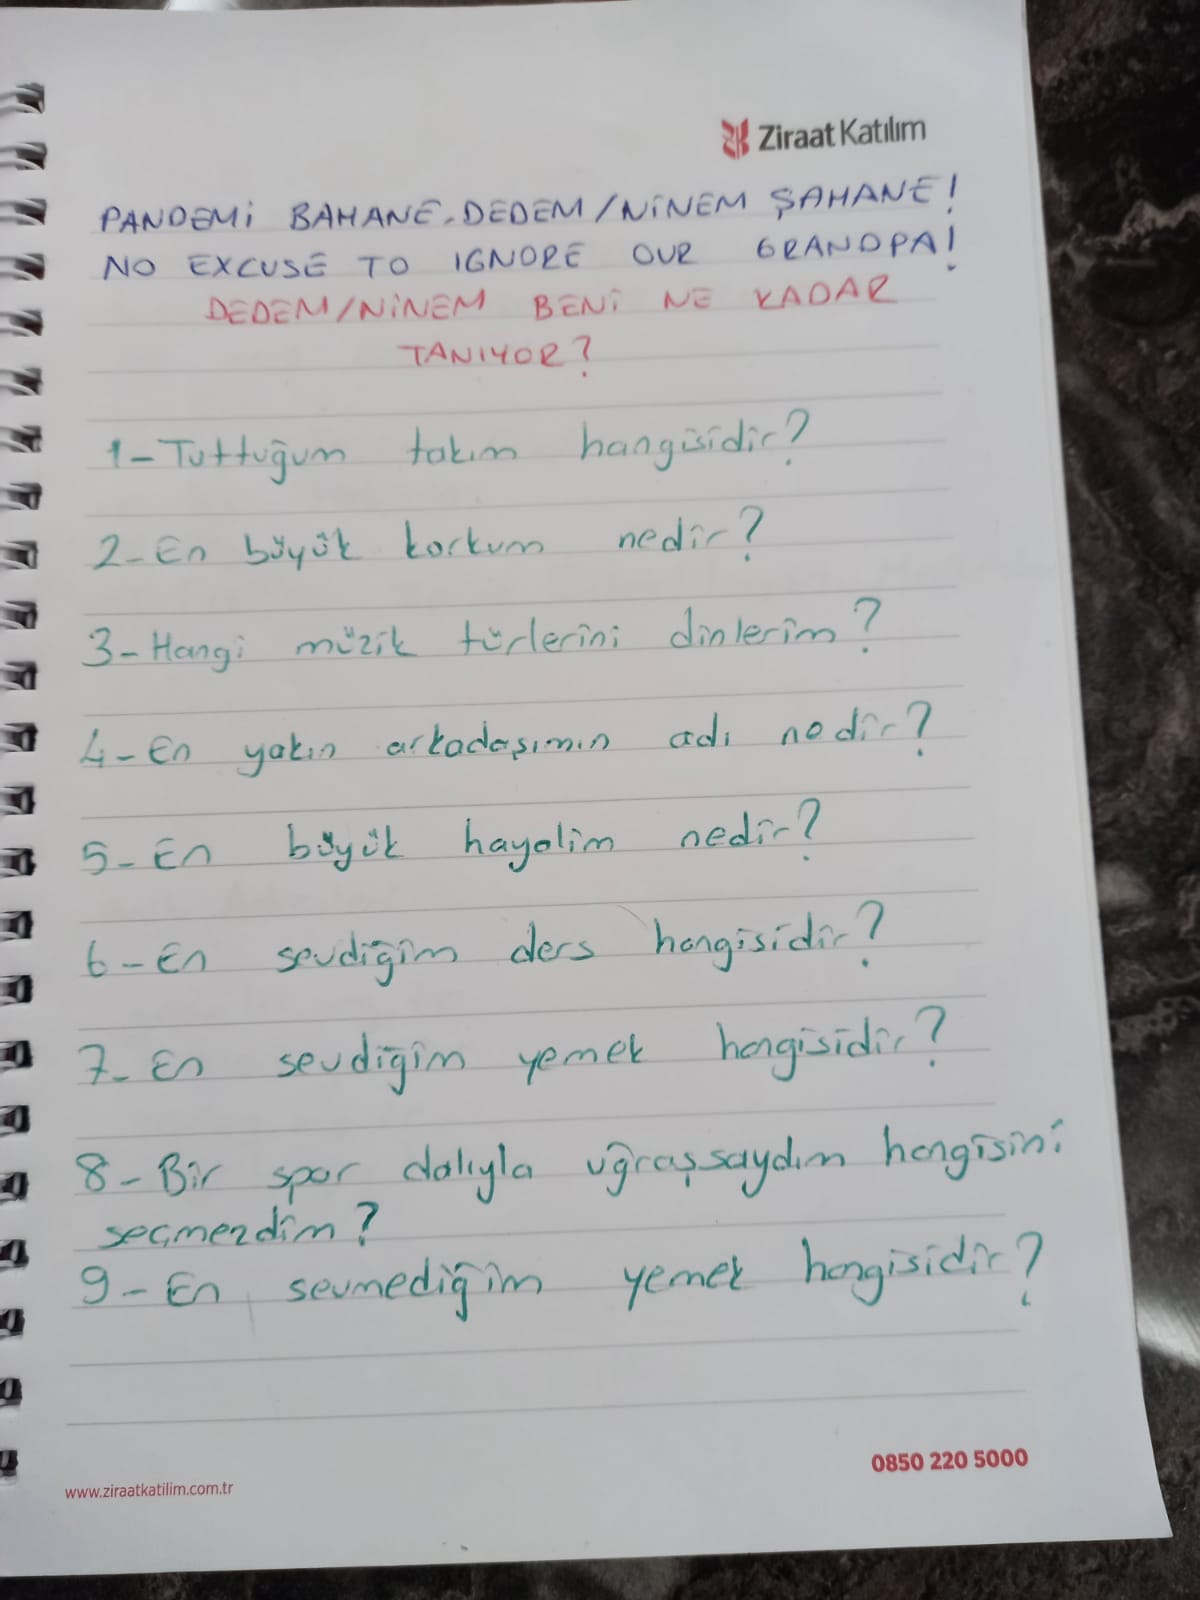 Ziraat Katılım
PANDEMİ BAHANE. DEDEM/NİNEM ŞAHANE!
NO EXCUSE TO IGNORE OUR GRANDPA!
DEDEM/NİNEM BENİ NE KADAR
TANIYOR?
1- Tuttuğum takım hangisidir?
2- En büyük korkum nedir?
3- Hangi müzik türlerini dinlerim?
4- En yakın arkadaşımın adı nedir?
5- En büyük hayalim nedir?
6- En sevdiğim ders hangisidir?
7- En sevdiğim yemek hangisidir?
8- Bir spor dalıyla uğraşsaydım hangisini
seçmezdim?
9- En sevmediğim yemek hangisidir?
0850 220 5000
www.ziraatkatilim.com.tr